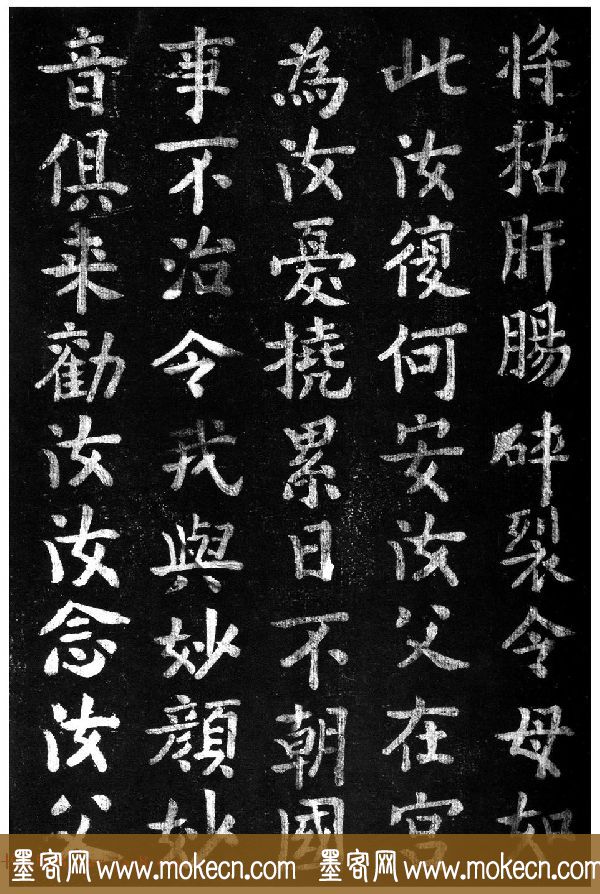 将枯肝腸砕裂令母如
此汝復何安汝父在宫
為汝憂撓累日不朝國
事不治令我與妙顔妙
音俱来勸汝汝念汝父
墨客网 www.mokecn.com 墨客网 www.mokecn.com